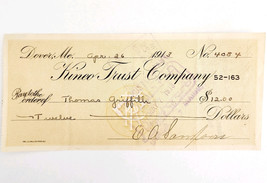 Dover, Me. Apr. 26 1913 No. 4084
Kineo Trust Company 52-163
Pay to the order of Thomas Griffith $12.00
Twelve Dollars
E. A. Sampson